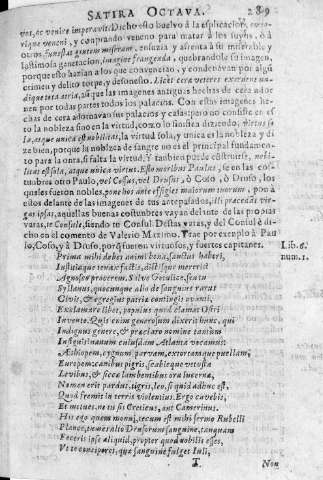 SATIRA OCTAVA. 289
vos, ec venire imperavit: Dicho esto buelvo à la esplicacion,
rique veneni, y comprando veneno para matar à los suyos, ò à
otros, funestat gentem miseram, ensuzia y afrenta à su miserable y
lastimosa generacion, imagine frangenda, quebrandole su imagen,
porque esto hazian a los que convencian, y condenavan por algũ
crimen y delito torpe, y desonesto. Licet cera veteres exornent un-
dique tota atria, aunque las imagenes antiguas hechas de cera ador-
nen por todas partes todos los palacios. Con estas imagenes he-
chas de cera adornavan sus palacios y casas: pero no consiste en es
to la nobleza sino en la virtud, como lo sinifica diziendo. Virtus so
la, atque unica est nobilitas, la virtud sola, y unica es la nobleza y di
ze bien, porque la nobleza de sangre no es el principal fundamen-
to para la onra, si falta la virtud. Y tambien puede construirse, nobi-
litas est sola, atque unica virtus. Esto moribus Paulus, se en las cos-
tumbres otro Paulo, vel Cossus, vel Drusus, ò Coso, ò Druso, los
quales fueron nobles, pone hos ante effigies maiorum tuorum, pon à
estos delante de las imagenes de tus antepasados, illi præcedat vir-
gas ipsas, aquellas buenas costumbres vayan delante de las propias
varas, te Consule, siendo tu Consul. Destas varas, y del Consul è di-
cho en el comento de Valerio Maximo. Trae por exemplo à Pau
lo, Coso, y à Druso, porq̃ fueron virtuosos, y fuertes capitanes.
Lib. 6.
num. 1.
Prima mihi debes animi bona, sanctus haberi,
Iustitiæque tenax factis, dictisque mereris
Agnosco procerem. Salve Getulice, seu tu
Syllanus, quocumque alio de sanguine rarus
Civis, & egregius patriæ contingis ovanti,
Exclamare libet, populus quod clamat Osiri
Invento. Quis enim generosum dixerit hunc, qui
Indignus genere, & præclaro nomine tantum
Insignis? nanum cuiusdam Atlanta vocamus:
Aethiopem, cygnum: parvam, extortamque puellam,
Europem: canibus pigris, scabieque vetusta
Levibus, & siccæ lambentibus ora lucernæ,
Nomen erit pardus, tigris, leo, si quid adhuc est,
Quod fremit in terris violentius. Ergo cavebis,
Et metues, ne tu sis Creticus, aut Camerinus.
His ego quem monui, tecum est mihi sermo Rubelli
Plance, tumes alto Drusorum sanguine, tanquam
Feceris ipse aliquid, propter quod nobilis esses,
Ut te conciperet, quæ sanguine fulget Iuli,
T. Non